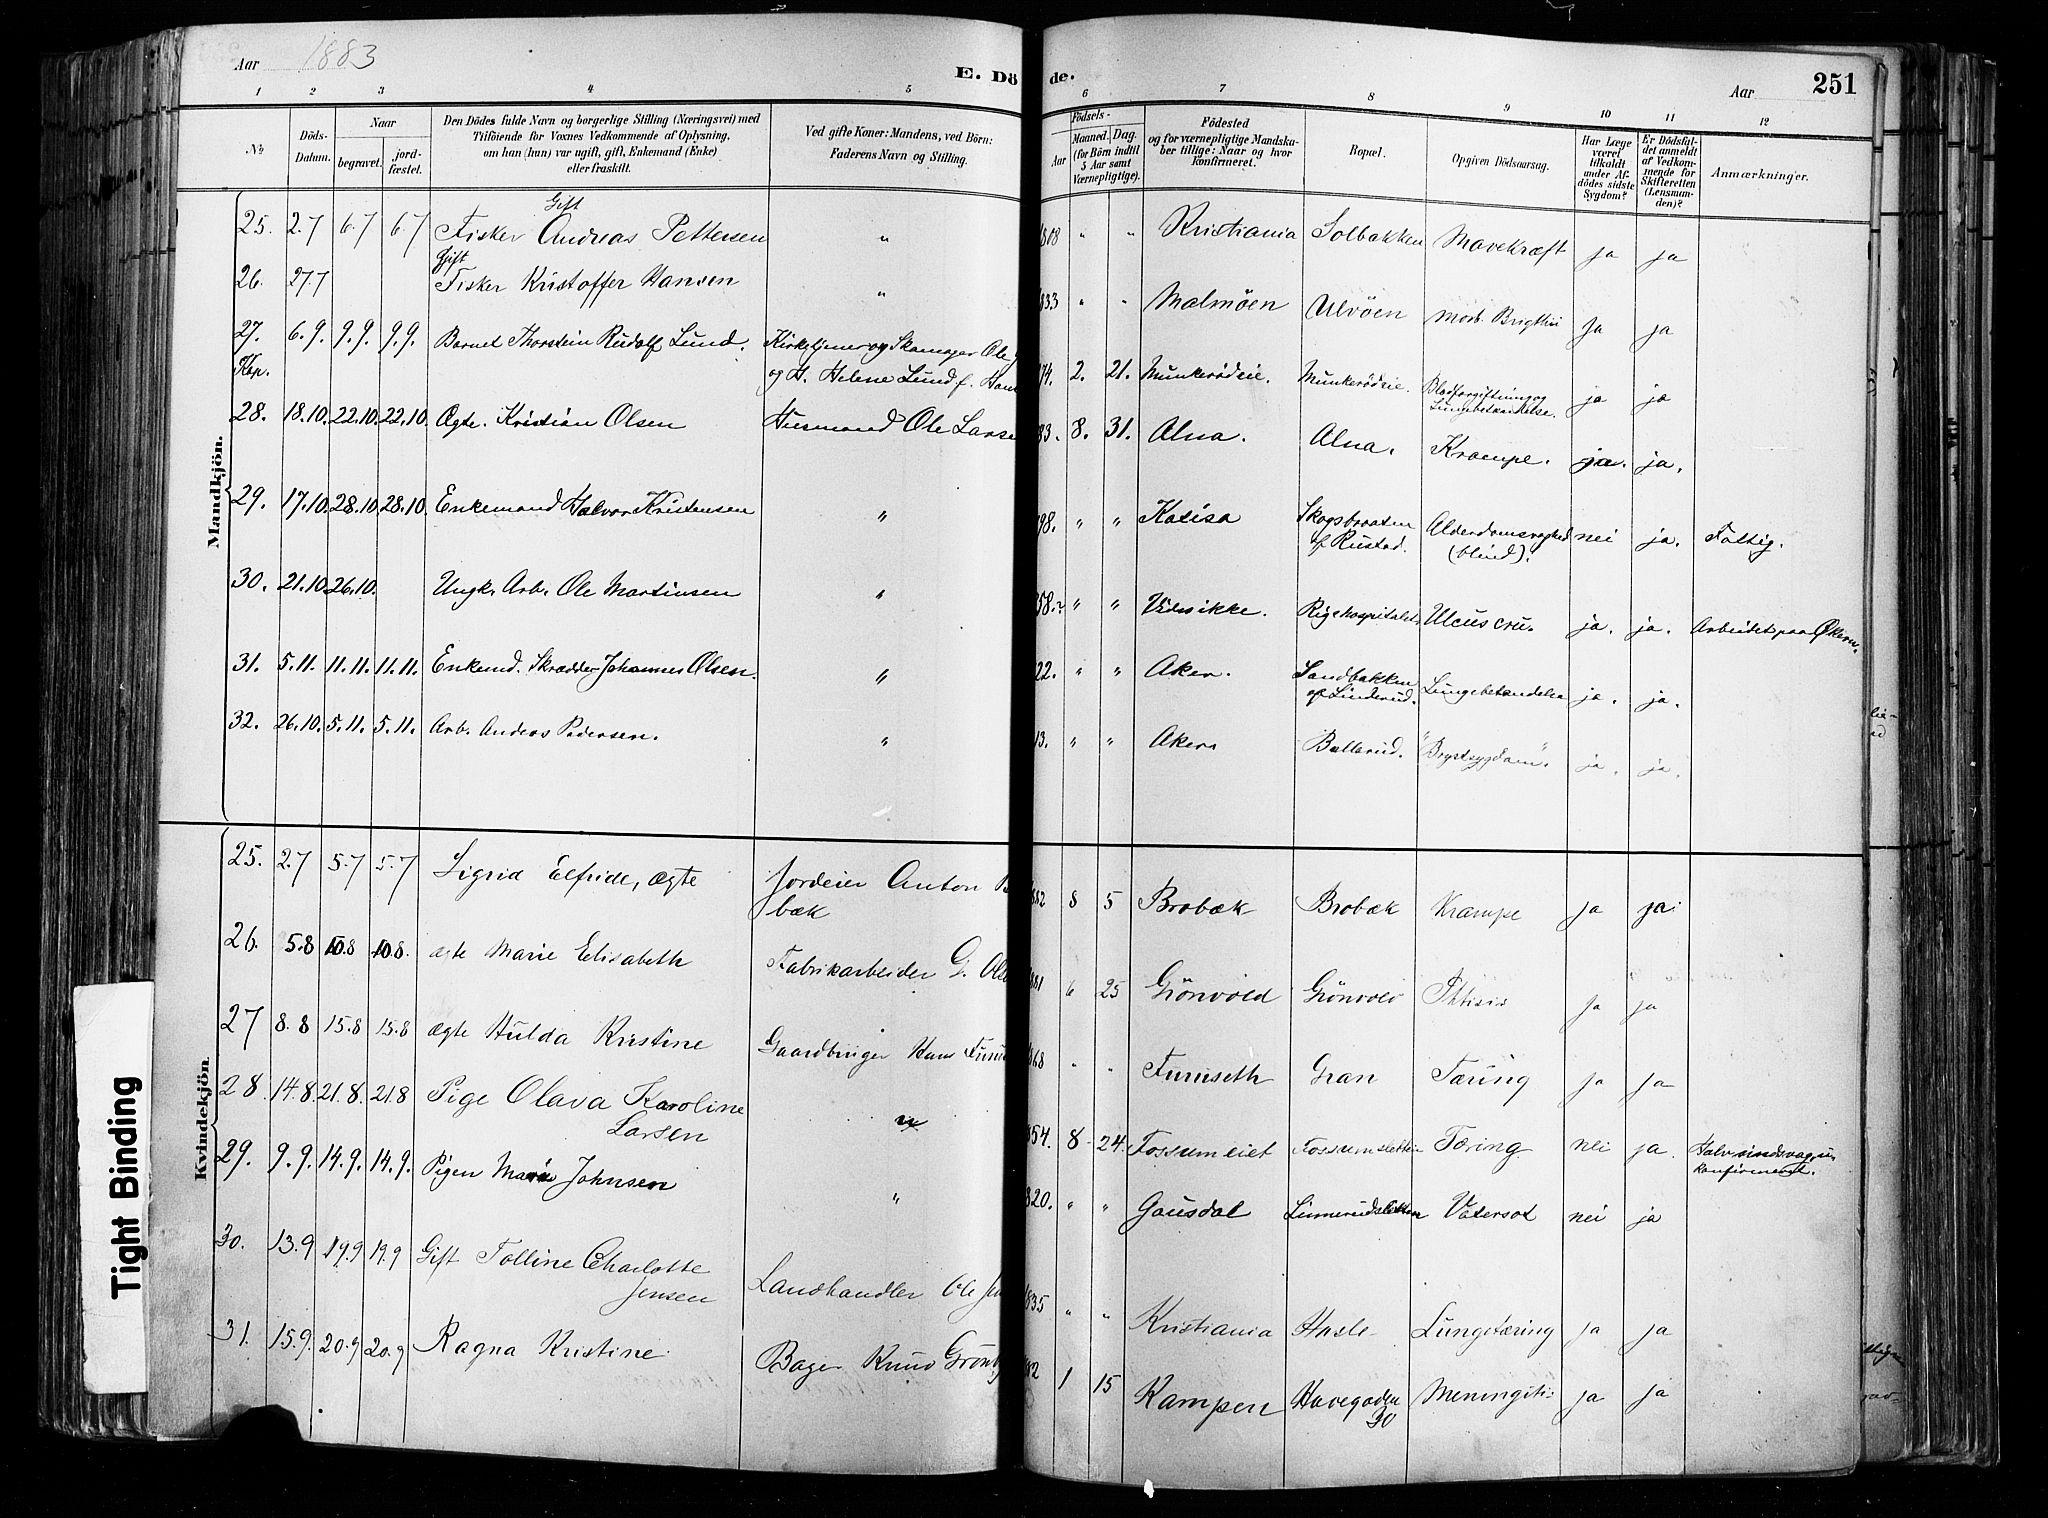 Aar 1883
E. Dö de.
Aar
251
1 2 3 4 5 6 7 8 9 10 11 12
No.
Döds-Datum.
Naar
begravet.
jord-fæstet.
Den Dödes fulde Navn og borgerlige Stilling (Næringsvei) med
Tilföiende for Voxnes Vedkommende af Oplysning,
om han (hun) var ugift, gift, Enkemand (Enke)
eller fraskilt.
Ved gifte Koner: Mandens, ved Börn:
Faderens Navn og Stilling.
Födsels-
Aar
Maaned. Dag.
(for Börn indtil
5 Aar samt
Værnepligtige).
Födested
og for værnepligtige Mandska-
ber tillige: Naar og hvor
konfirmeret.
Bopæl.
Opgiven Dödsaarsag.
Har Læge
været
tilkaldt
under Af-
dödes sidste
Sygdom?
Er Dödsfal-
det anmeldt
af Vedkom-
mende for
Skifteretten
(Lensman-
den)?
Anmærkninger.
Mandkjön.
25. 2.7 6.7 6.7 Gift Fisker Andreas Pettersen " 808 " " Kristiania Solbakken Mavekræft ja ja
26. 27.7 Gift Fisker Kristoffer Hansen " 833 " " Malmöen Ulvöen Morb. Brigthii Ja ja
27. Kap. 6.9. 9.9. 9.9. Barnet Thorstein Rudolf Lund. Kirketjener og Skomager Ole
og H. Helene Lund f. 74. 2. 21. Munkerödeie. Munkerödeie. Blodforgiftning og
Lungebetændelse. ja ja
28. 18.10. 22.10. 22.10. Ægte. Kristian Olsen Husmand Ole Larse 83. 8. 31. Alna. Alna. Krampe. ja. ja.
29. 17.10. 28.10 28.10. Enkemand Halvor Kristensen " 98. " " Skogsbraaten
af Rustad. Alderdomssvaghed
(blind). nei ja. Fattig.
30. 21.10. 26.10. Ungk. Arb. Ole Martinsen " 58.? " " Rigshospitalet Ulcus cru. ja. ja. Arbeidet paa Økern.
31. 5.11. 11.11. 11.11. Enkemd. Skrædder Johannes Olsen. " 22. " " Aker. Sandbakken
af Linderud. Lungebetændelse ja. ja.
32. 26.10. 5.11. 5.11. Arb. Anders Pedersen. " 13. " " Aker Ballerud. "Brystsygdom". ja. ja.
Kvindekjön.
25. 2.7 5.7 5.7 Sigrid Elfride, ægte Jordeier Anton B
bæk 882 8 5 Brobæk Brobæk Krampe ja ja.
26. 5.8 10.8 10.8. ægte Marie Elisabeth Fabrikarbeider G. Ols 881 6 25 Grönvold Grönvold Phtisis Ja ja
27 8.8 15.8 15.8 ægte Hulda Kristine Gaardbruger Hans Furu 868 " " Furuseth Gran Tæring ja ja
28. 14.8. 21.8. 21.8 Pige Olava Karoline
Larsen " 854. 8 24. Fossumeiet Fossumsletten Tæring nei ja. Halv sindsvag, u
konfirmeret.
29. 9.9. 14.9. 14.9. Pigen Marie Johnsen " 820. " " Gausdal Linnerudsletten Vatersot nei ja
30. 13.9 19.9 19.9 Gift Tolline Charlotte
Jensen Landhandler Ole Jen 835 " " Kristiania Hasle Lungetæring ja ja
31. 15.9. 20.9 20.9 Ragna Kristine Bager Knud Grönb 882 1 15 Kampen Havegaden
30 Meningitis ja ja
Tight Binding